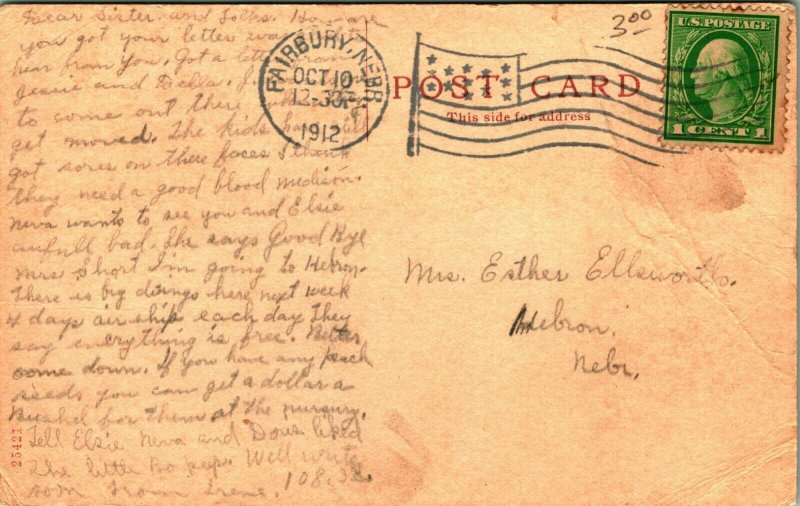 Dear Sister and Folks. How are
you got your letter was
hear from you. Got a letter from
Jessie and Della.
to come out there
get moved. The kids have all
got sores on there faces I think
they need a good blood medison.
Neva wants to see you and Elsie
awfull bad. She says Good Bye
Mrs Short I'm going to Hebron.
There is big doings here next week
4 days air ship each day They
say everything is free. Better
come down. If you have any peach
seeds you can get a dollar a
Bushel for them at the nursury.
Tell Elsie Neva and Doris liked
the little Bo peep. Well write
soon from Irene. 108.
25421
FAIRBURY, NEBR
OCT 10
12-30P
1912
POST CARD
This side for address
3.00
U.S. POSTAGE
1 CENT 1
Mrs. Esther Ellsworth.
Hebron,
Nebr.